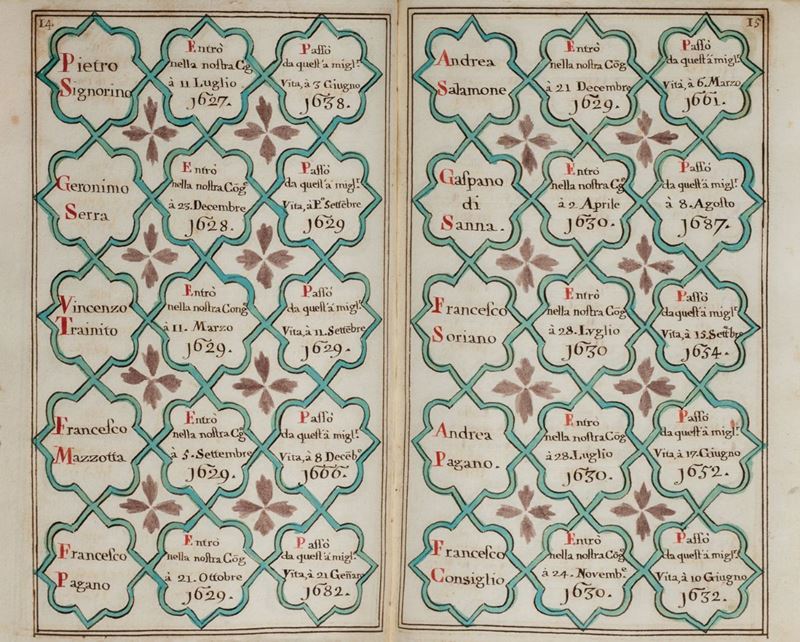 14.
Pietro
Signorino
Entrò
nella nostra Cõg
à 11 Luglio
1627.
Passò
da quest'a migl.ʳ
Vita, à 3 Giugno
1638.
Geronimo
Serra
Entrò
nella nostra Cõg.ᵉ
à 23. Decembre
1628.
Passò
da quest'a migl.ʳ
Vita, à P.º Settẽbre
1629
Vincenzo
Trainito
Entrò
nella nostra Cong.ᵉ
à 11. Marzo
1629.
Passò
da quest'á migl.ʳ
Vita, à 11. Settẽbre
1629.
Francesco
Mazzotta
Entrò
nella nostra Cõg.ᵉ
à 5. Settembre
1629.
Passò
da quest'á migl.ʳ
Vita, à 8 Decẽb.ᵉ
1666.
Francesco
Pagano
Entrò
nella nostra Cõg
à 21. Ottobre
1629.
Passò
da quest'á migl.ʳ
Vita, à 21 Geñaro
1682.
15
Andrea
Salamone
Entrò
nella nostra Cõg
à 21 Decembre
1629.
Passò
da quest'á migl.ʳ
Vita, à 6. Marzo
1661.
Gaspano
di
Sanna.
Entrò
nella nostra Cõg.ᵉ
à 2. Aprile
1630.
Passò
da quest'á migl.ʳ
à 8. Agosto
1687.
Francesco
Soriano
Entrò
nella nostra Cõg
à 28. Lvglio
1630
Passò
da quest'á migl.ʳ
Vita, à 15. Settẽbre
1654.
Andrea
Pagano.
Entrò
nella nostra Cõg
à 28. Luglio
1630.
Passò
da quest'á migl.ʳ
Vita, à 17. Giugno
1652.
Francesco
Consiglio
Entrò
nella nostra Cõg
à 24. Novemb.ᵉ
1630.
Passò
da quest'á migl.ʳ
Vita, à 10 Giugno
1632.